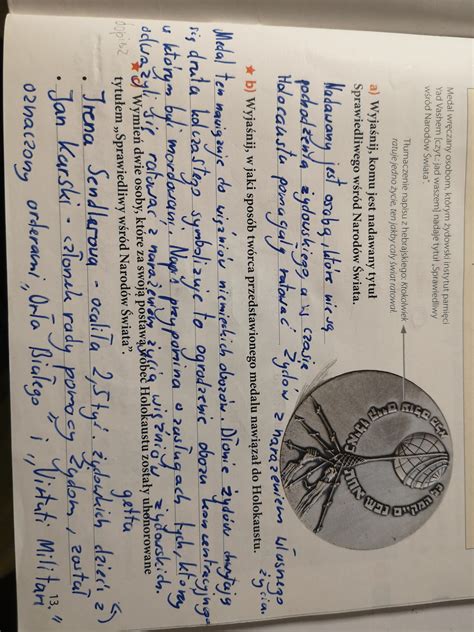 Medal wręczany osobom, którym żydowski instytut pamięci
Yad Vashem [czyt.: jad waszem] nadaje tytuł „Sprawiedliwy
wśród Narodów Świata”.
Tłumaczenie napisu z hebrajskiego: Ktokolwiek
ratuje jedno życie, ten jakby cały świat ratował.
a) Wyjaśnij, komu jest nadawany tytuł
Sprawiedliwego wśród Narodów Świata.
Nadawany jest osobą, które nie są
pochodzenia żydowskiego, a w czasie
Holocaustu pomagały ratować Żydów z narażeniem własnego
życia.
★ b) Wyjaśnij, w jaki sposób twórca przedstawionego medalu nawiązał do Holokaustu.
Medal ten nawiązuje do więźniów niemieckich obozów. Dłonie żydów chwytają
się druta kolczastego symbolizuje to ogrodzenie obozu koncentracyjnego
w którym byli mordowani. Napis przypomina o zasługach tych, którzy
odważyli się ratować z narażeniem życia więźniów żydowskich.
★ c) Wymień dwie osoby, które za swoją postawę wobec Holokaustu zostały uhonorowane
dopisz
tytułem „Sprawiedliwy wśród Narodów Świata”.
getta
• Irena Sendlerowa - ocaliła 2,5 tyś. żydowskich dzieci z
• Jan Karski - członek rady pomocy Żydom, został
oznaczony orderami „Orła Białego” i „Virtuti Militari”
13.